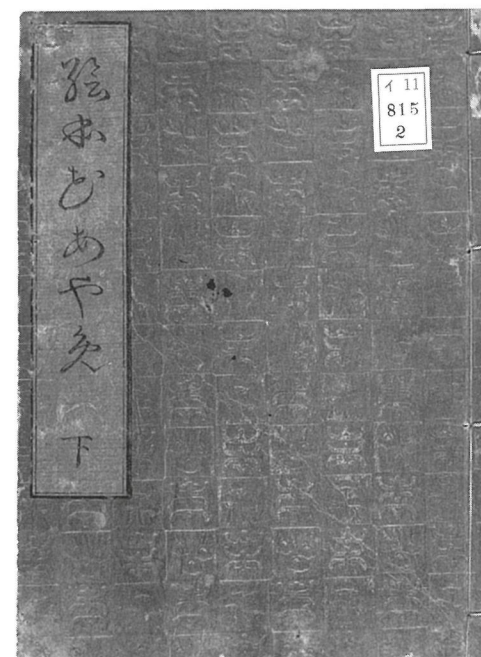 絵本花あやめ 下
イ 11
815
2